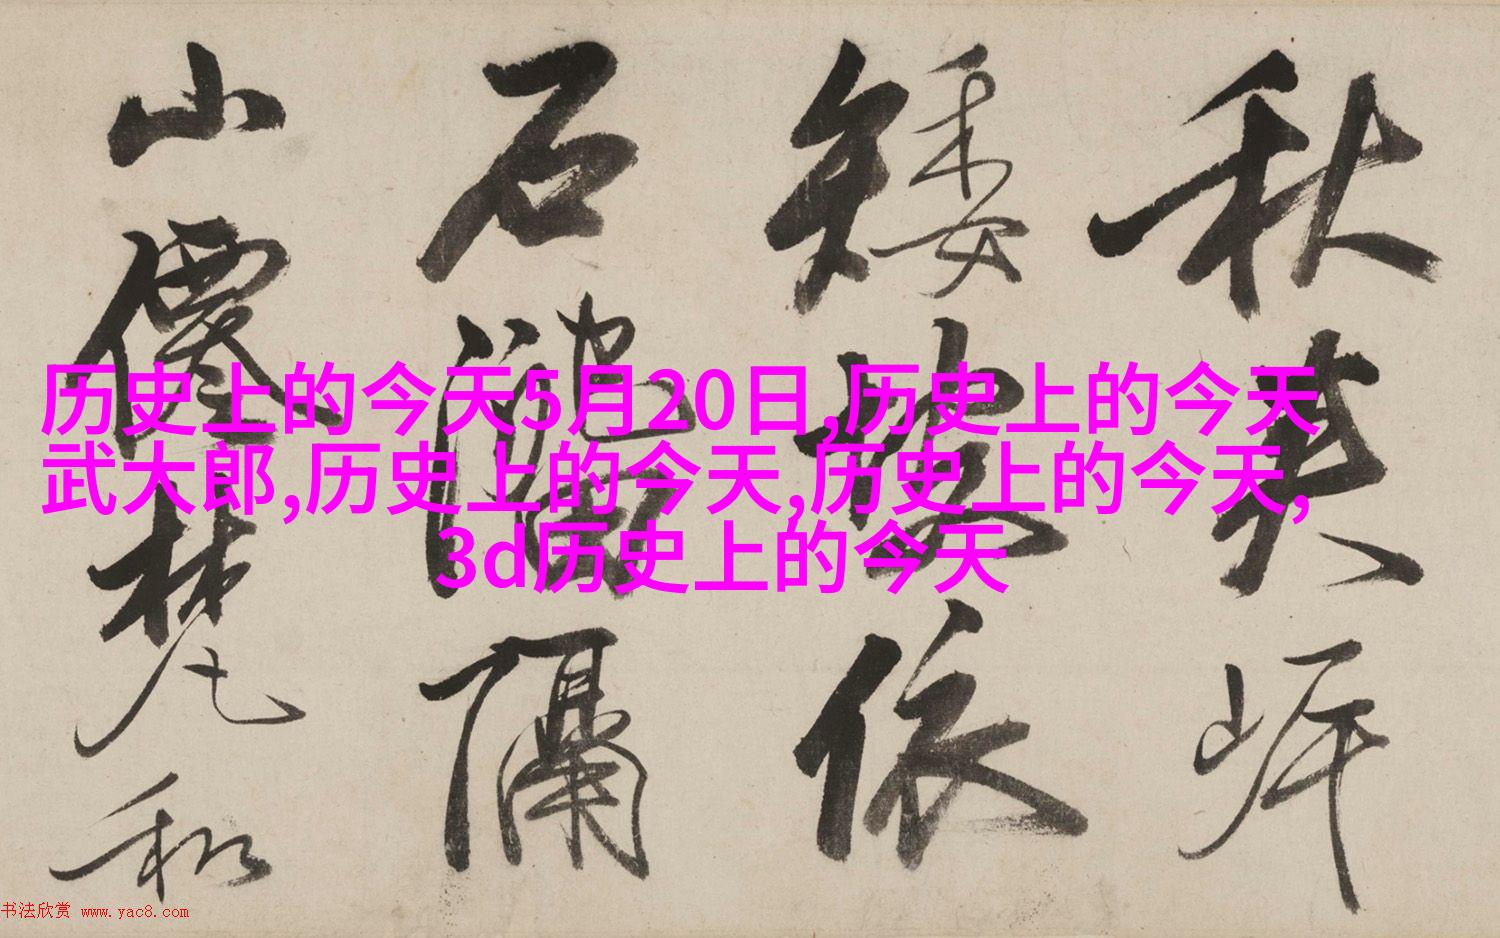 历史上的今天5月20日,历史上的今天
武大郎,历史上的今天,历史上的今天,
3d历史上的今天
秋
矮依
石隔
山僊梵和
书法欣赏 www.yac8.com